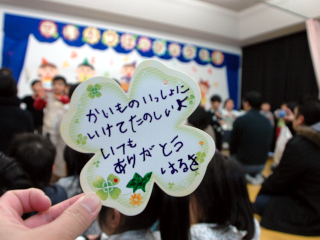 かいものいっしょに
いけてたのしいよ
いつも
ありがとう
はるき